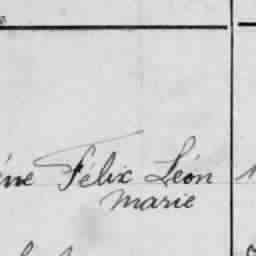 Félix Léon
Marie